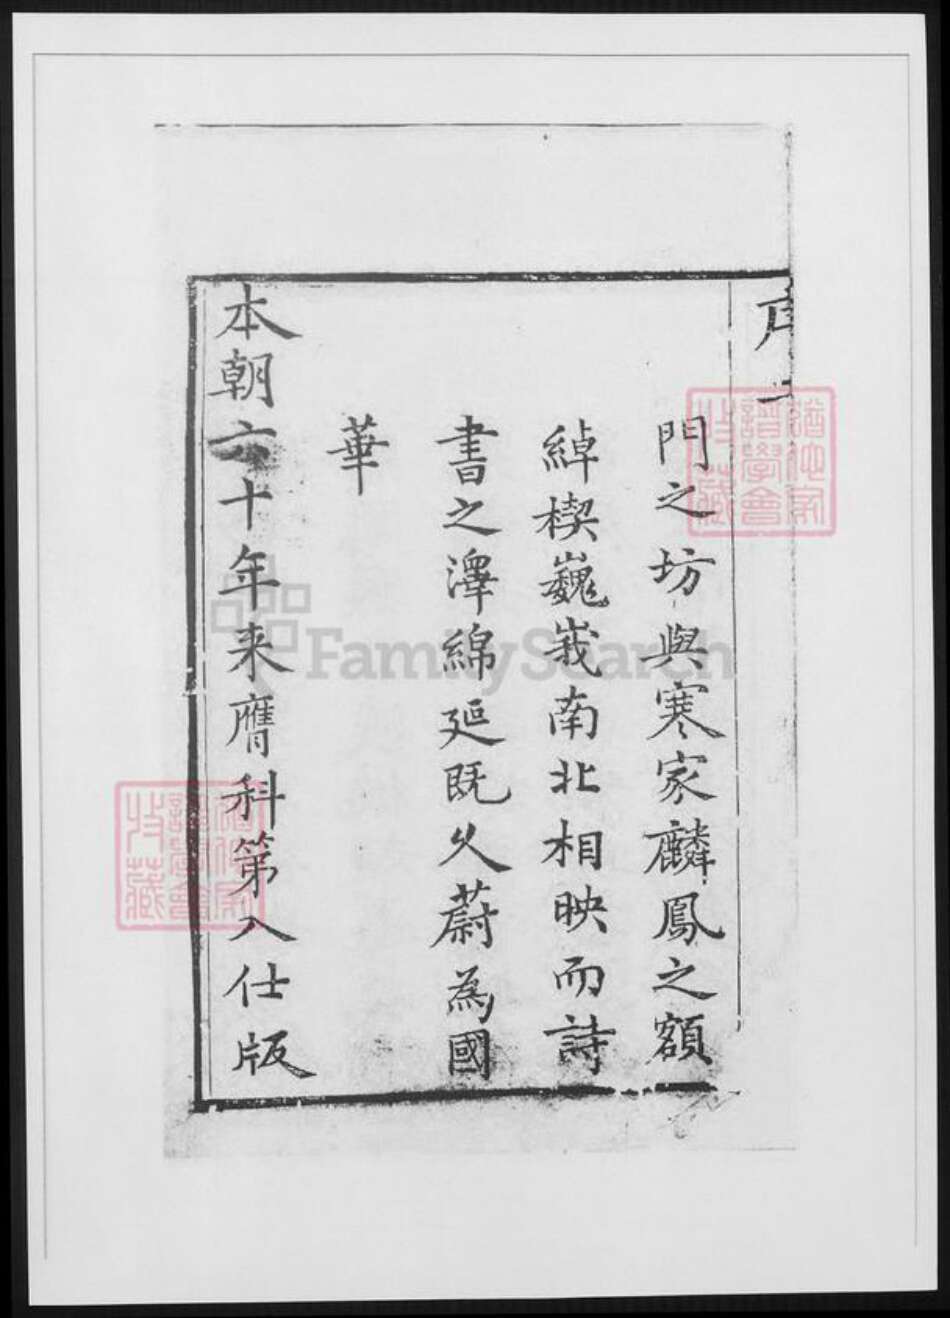 序
門之坊與寒家麟鳳之額
綽楔巍峩南北相映而詩
書之澤綿延既久蔚為國
華
本朝六十年来膺科第入仕版
FamilySearch
譜學會
收藏
譜學會
收藏